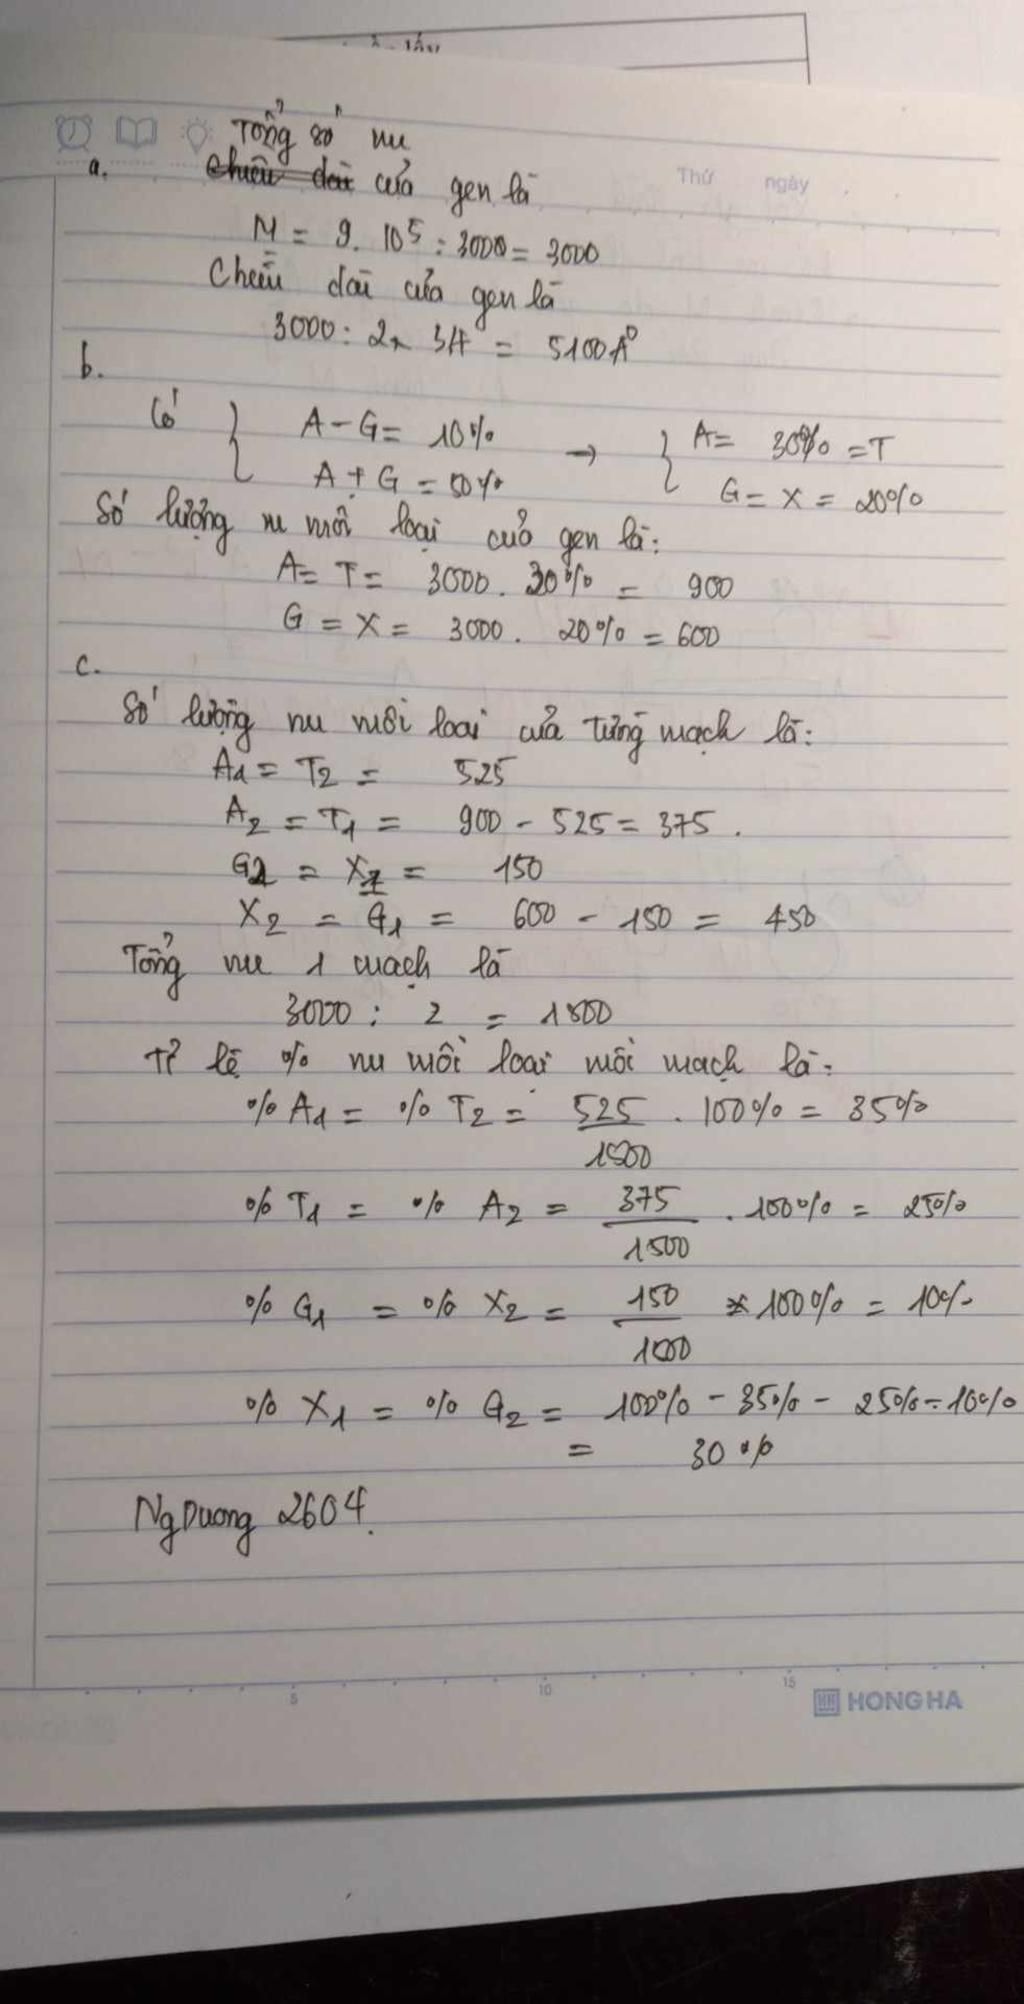 Tổng số nu
Thứ ngày
a. Chiều dài của gen là
N = 9. 10^5 : 300 = 3000
Chiều dài của gen là
3000 : 2 x 3,4 = 5100 A°
b.
Có { A - G = 10% → { A = 30% = T
A + G = 50% G = X = 20%
Số lượng nu mỗi loại của gen là:
A = T = 3000 . 30% = 900
G = X = 3000 . 20% = 600
c.
Số lượng nu mỗi loại của từng mạch là:
A1 = T2 = 525
A2 = T1 = 900 - 525 = 375.
G2 = X1 = 150
X2 = G1 = 600 - 150 = 450
Tổng nu 1 mạch là
3000 : 2 = 1500
Tỉ lệ % nu mỗi loại mỗi mạch là:
% A1 = % T2 = 525/1500 . 100% = 35%
% T1 = % A2 = 375/1500 . 100% = 25%
% G1 = % X2 = 150/1500 * 100% = 10%
% X1 = % G2 = 100% - 35% - 25% - 10%
= 30%
NgDuong 2604.
5 10 15
HH HONG HA